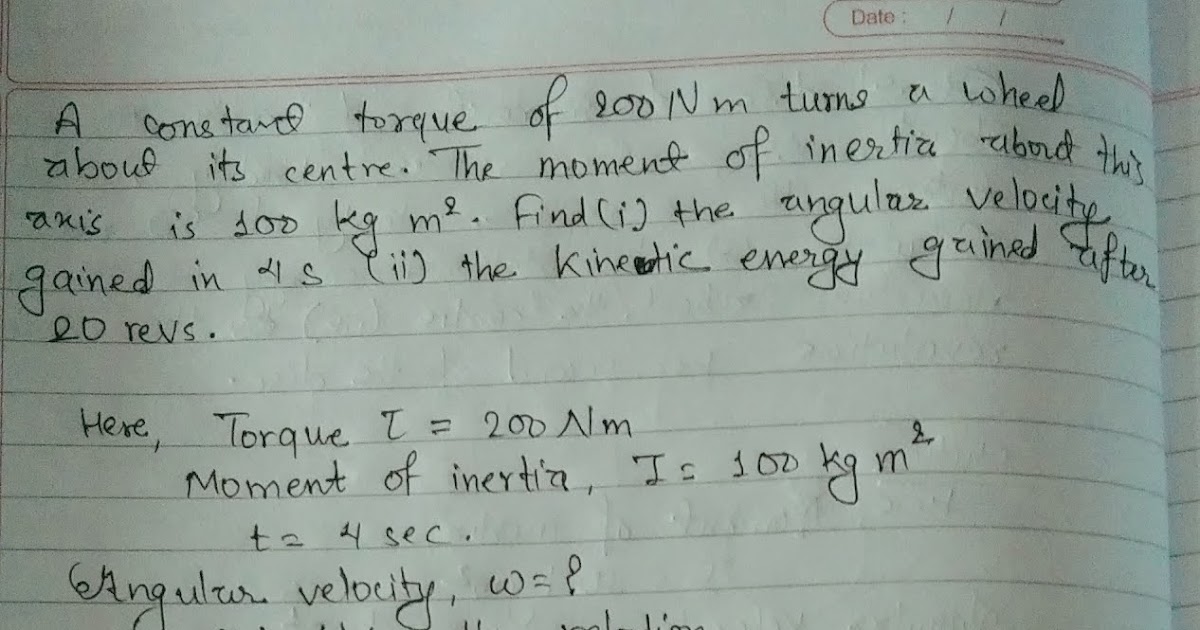 Date : / /
A constant torque of 200 Nm turns a wheel
about its centre. The moment of inertia about this
axis is 100 kg m². Find (i) the angular velocity
gained in 4 s (ii) the kinetic energy gained after
20 revs.
Here, Torque τ = 200 Nm
Moment of inertia, I = 100 kg m²
t = 4 sec.
Angular velocity, ω = ?